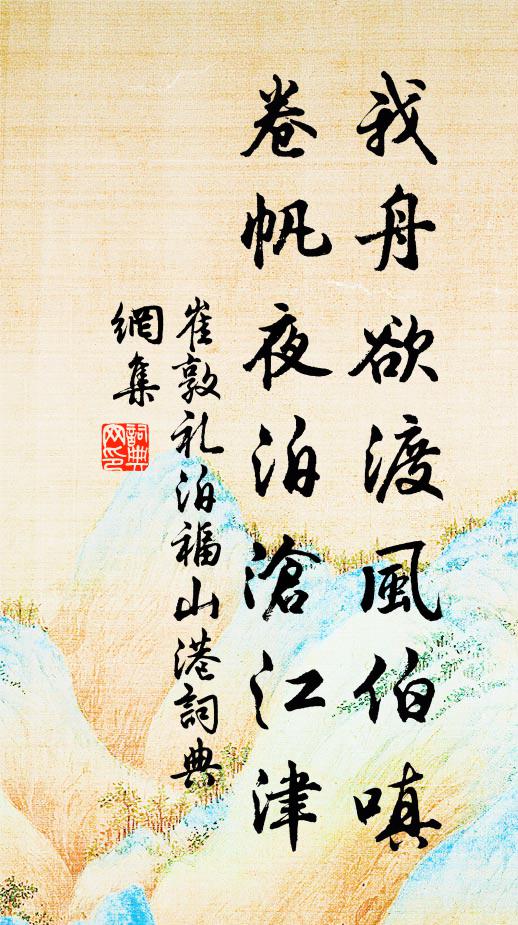 我舟欲渡風伯嗔
卷帆夜泊滄江津
崔敦礼泊福山港詞典
網集
詞典
网印